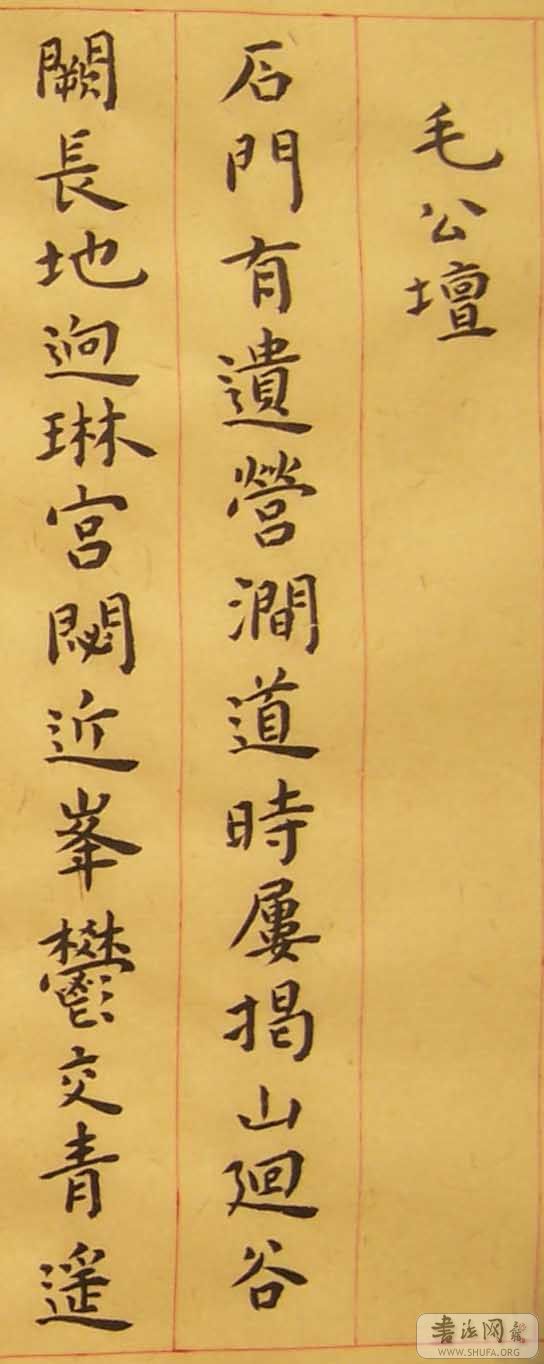 毛公壇
石門有遺營澗道時屢揭山廻谷
闕長地逈琳宮閟近峯鬱交青遥
書法网
WWW.SHUFA.ORG